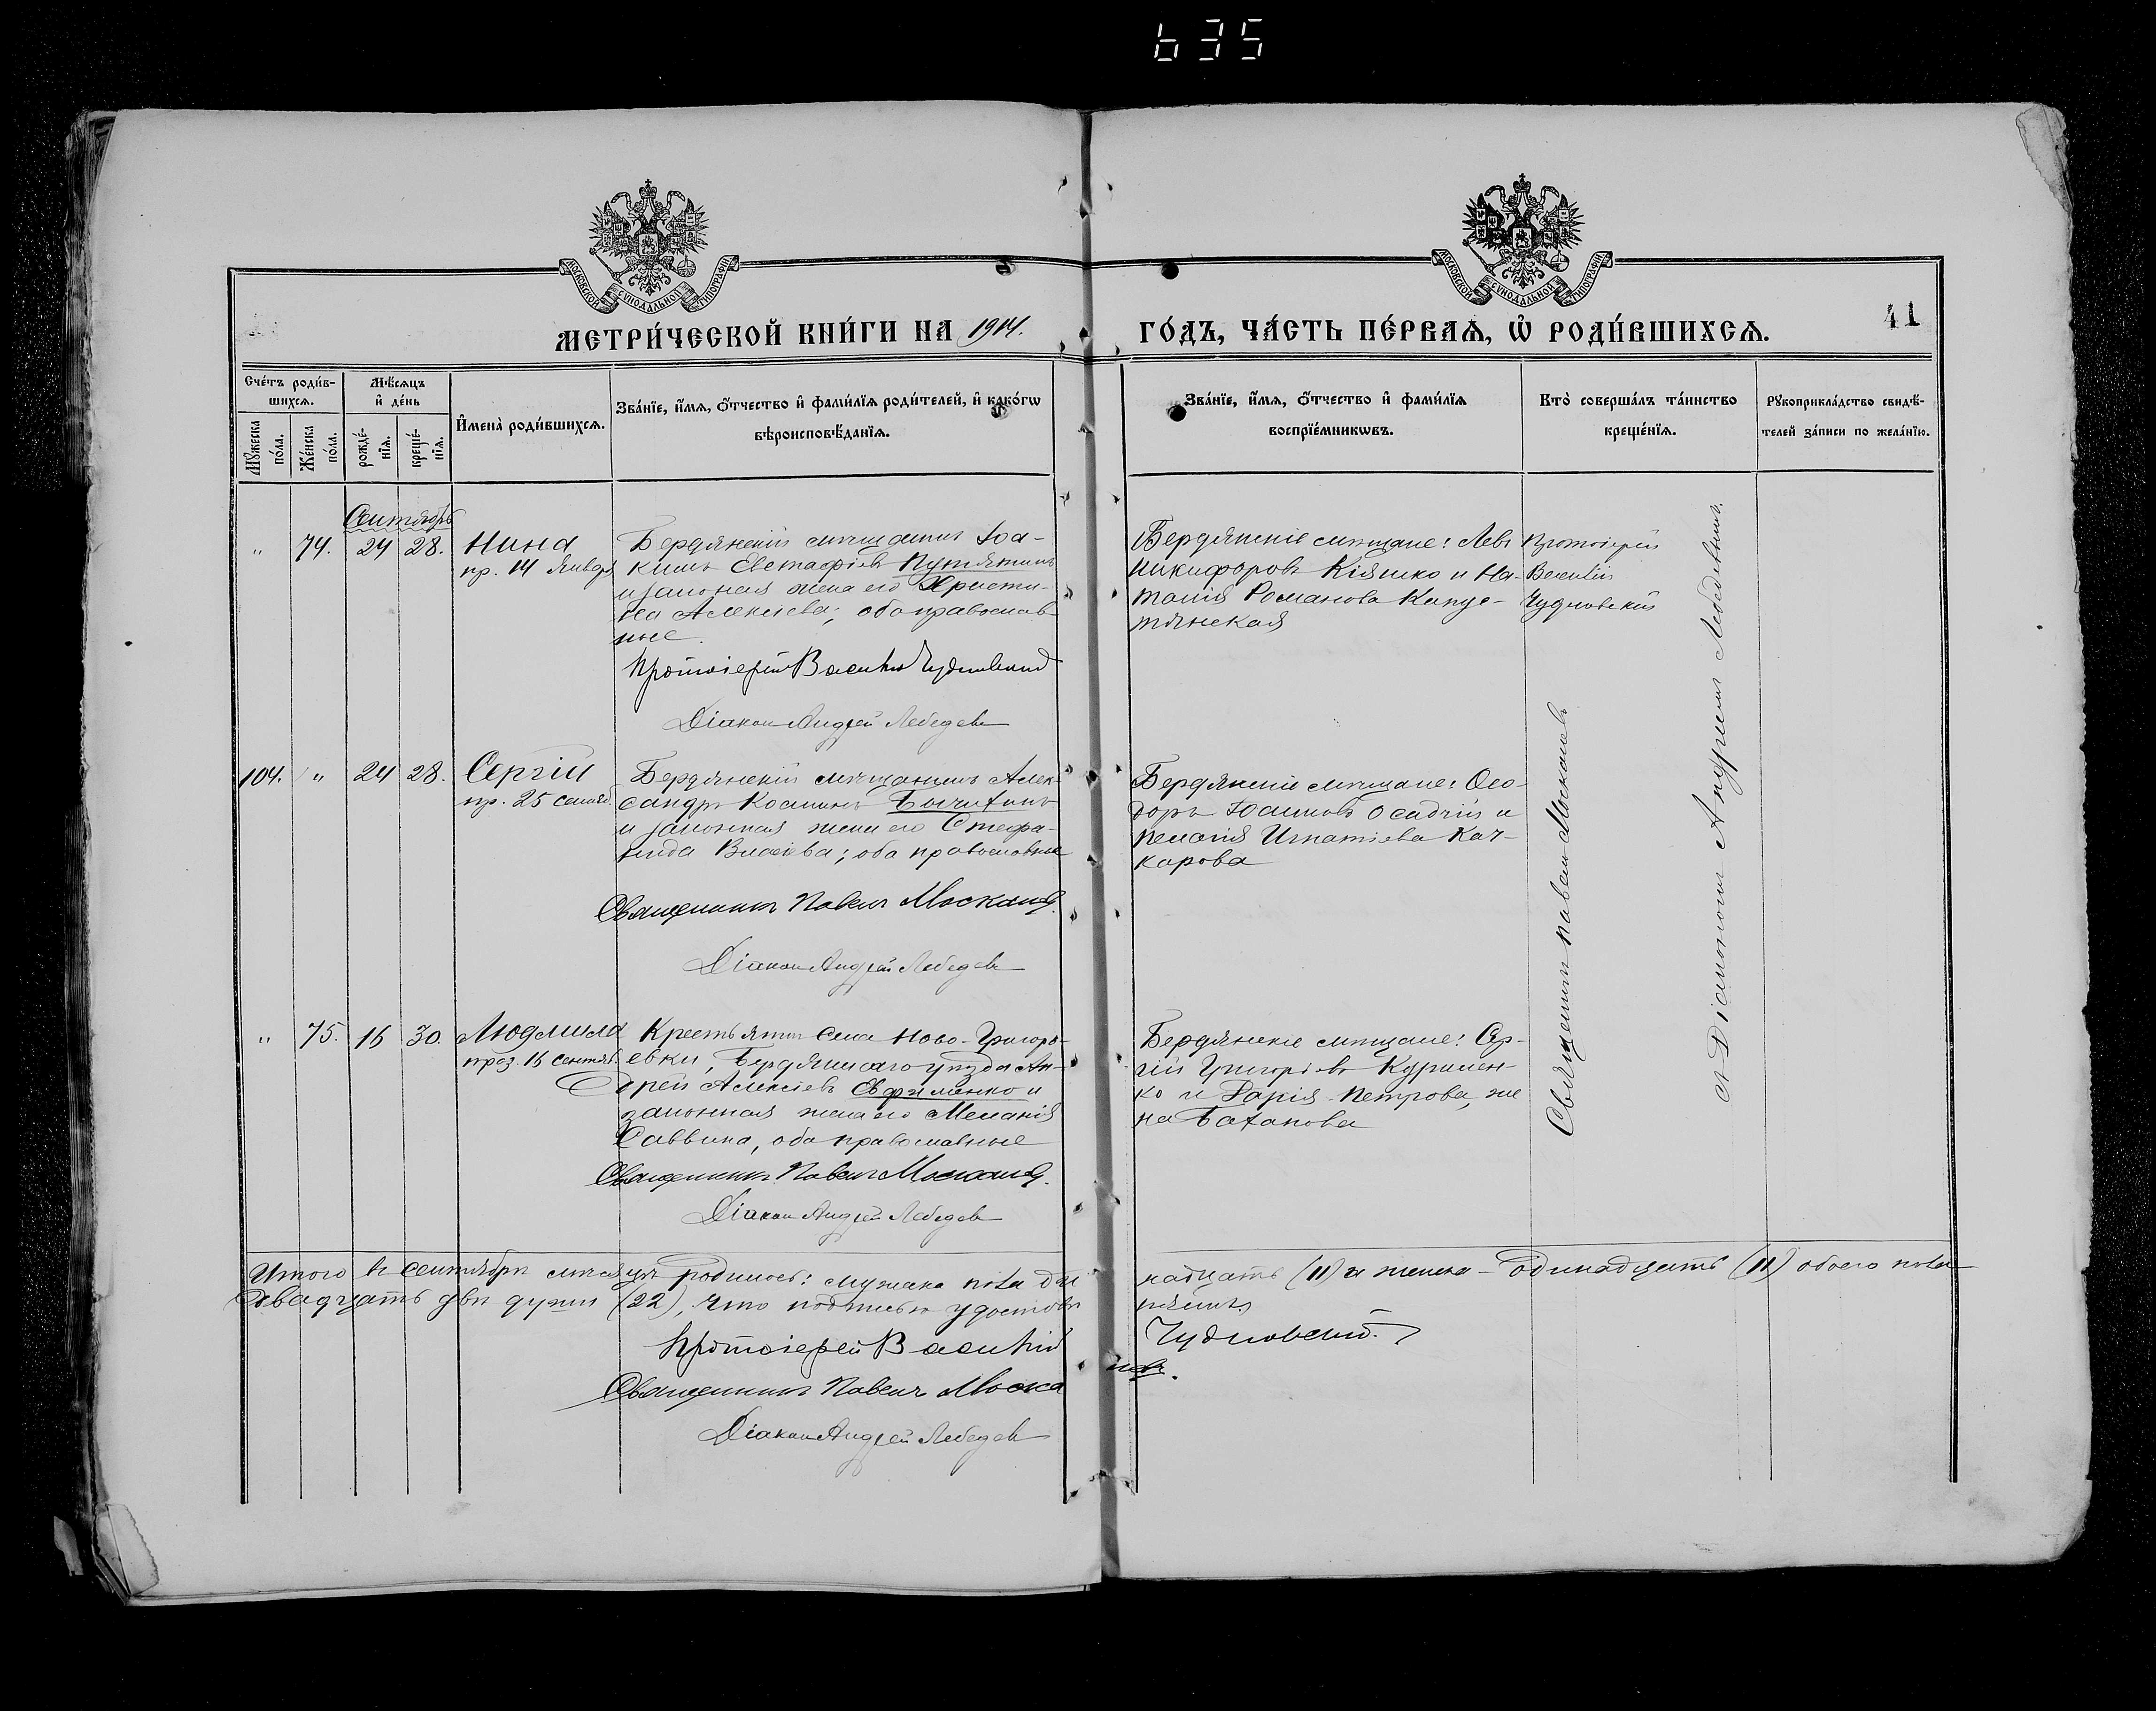 635
МОСКОВСКОЙ СѴНОДАЛЬНОЙ ТИПОГРАФІИ
МОСКОВСКОЙ СѴНОДАЛЬНОЙ ТИПОГРАФІИ
МЕТРИ́ЧЕСКОЙ КНИ́ГИ НА 1914.
ГО́ДЪ, ЧА́СТЬ ПЕ́РВАѦ, Ѡ҆ РОДИ́ВШИХСѦ.
41
Сче́тъ роди́в-
шихсѧ.
Мꙋ́жеска по́ла.
Же́нска по́ла.
Мѣ́сѧцъ
и҆ де́нь
рожде́-
нїѧ.
креще́-
нїѧ.
И҆мена̀ роди́вшихсѧ.
Зва́нїе, и҆́мѧ, ѻ҆́тчество и҆ фами́лїѧ роди́телей, и҆ како́гѡ
вѣроисповѣ́данїѧ.
Зва́нїе, и҆́мѧ, ѻ҆́тчество и҆ фами́лїѧ
воспрїе́мникѡвъ.
Кто̀ соверша́лъ та́инство
креще́нїѧ.
Рꙋкоприкла́дство свидѣ́-
телей за́писи по жела́нїю.
Сентябрь
" 74. 24 28. Нина
пр. 14 Января
Бердянскій мѣщанинъ Іоа-
кимъ Евстафіевъ Путятинъ
и законная жена его Христи-
на Алексіева; оба православ
ные.
Протоіерей Василій Чудновскій
Діаконъ Андрей Лебедевъ
Бердянскіе мѣщане: Левъ
Никифоровъ Кіяшко и На-
талія Романова Капус-
тянская
Протоіерей
Василій
Чудновскій
104. " 24 28. Сергій
пр. 25 сентяб.
Бердянскій мѣщанинъ Алек-
сандръ Косминъ
и законная жена его Стефа-
нида Власіева; оба православные
Священникъ Павелъ Москалевъ.
Діаконъ Андрей Лебедевъ
Бердянскіе мѣщане: Ѳео-
доръ Іоанновъ Осадчій и
Пелагія Игнатіева Кач-
карова
" 75. 16 30. Людмила
праз. 16 сентяб.
Крестьянинъ села Ново-Григорь-
евки, Бердянскаго уѣзда Ан-
дрей Алексіевъ Евфименко и
законная жена его Меланія
Саввина, оба православные
Священникъ Павелъ Москалевъ.
Діаконъ Андрей Лебедевъ
Бердянскіе мѣщане: Сер-
гій Григоріевъ Курилен-
ко и Дарія Петрова, же
на Баханова
Священникъ Павелъ Москалевъ
съ Діакономъ Андреемъ Лебедевымъ.
Итого въ сентябрѣ мѣсяцѣ родилось: мужска пола оди
надцать (11) и женска – одинадцать (11) обоего пола
двадцать двѣ души (22), что подписью удостовѣ
ряемъ.
Протоіерей Василій Чудновскій.
Священникъ Павелъ Москалевъ.
Діаконъ Андрей Лебедевъ